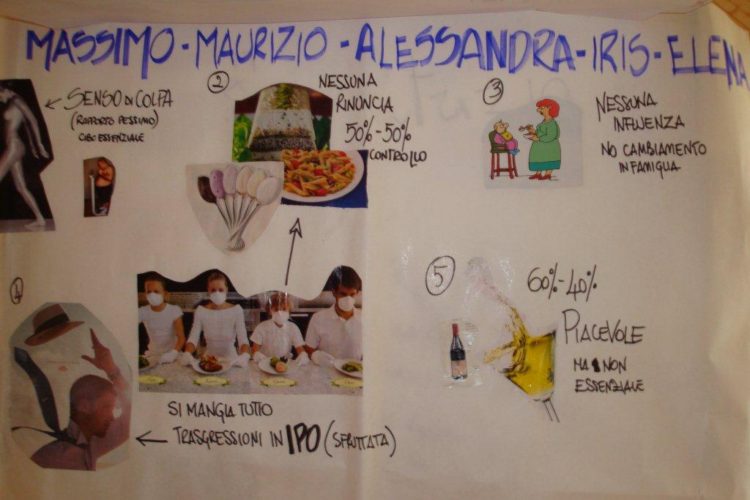 MASSIMO - MAURIZIO - ALESSANDRA - IRIS - ELENA
← SENSO DI COLPA
(RAPPORTO PESSIMO)
CIBO ESSENZIALE
2
NESSUNA
RINUNCIA
50% - 50%
CONTROLLO
3
NESSUNA
INFLUENZA
NO CAMBIAMENTO
IN FAMIGLIA
SI MANGIA TUTTO
← TRASGRESSIONI IN IPO (SFRUTTATA)
5
60% - 40%
PIACEVOLE
MA NON
ESSENZIALE